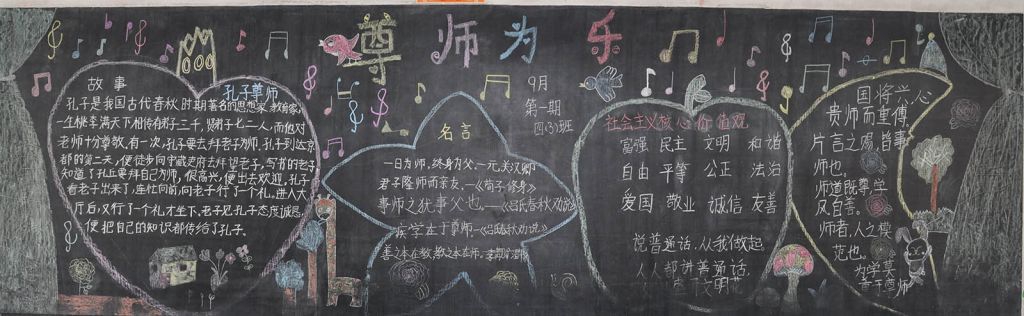 尊师为乐
9月
第一期
四(3)班
故事
孔子尊师
孔子是我国古代春秋时期著名的思想家教育家,
一生桃李满天下相传有弟子三千,贤弟子七二人,而他对
老师十分尊敬,有一次,孔子要去拜老子为师,孔子到达京
都的第二天,便徒步向守藏史府去拜望老子,写书的老子
知道了孔丘要拜自己为师,很高兴,便出去欢迎,孔子
看老子出来了,连忙向前,向老子行了一个礼。进入大
厅后,又行了一个礼才坐下,老子见孔子态度诚恳,
便把自己的知识都传给了孔子。
名言
一日为师,终身为父。—元关汉卿
君子隆师而亲友。—《荀子修身》
事师之犹事父也。——《吕氏春秋劝说》
疾学在于尊师—《吕氏春秋劝说》
善之本在教,教之本在师。
社会主义核心价值观
富强 民主 文明 和谐
自由 平等 公正 法治
爱国 敬业 诚信 友善
说普通话.从我做起
人人都讲普通话
文明
国将兴,心
贵师而重傅,
片言之赐,皆事
师也。
师道既尊,学
风自善。
师者,人之模
范也。
为学莫
重于尊师